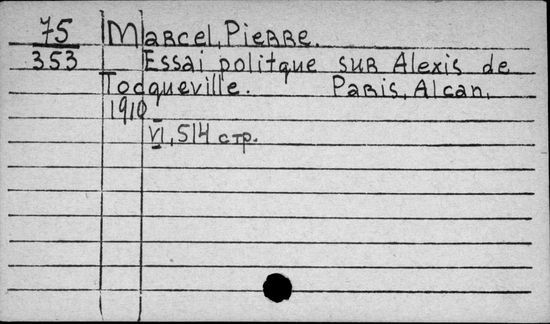 75 Marcel, Pierre.
353 Essai politque sur Alexis de
Tocqueville. Paris, Alcan.
1910
VI, 514 стр.